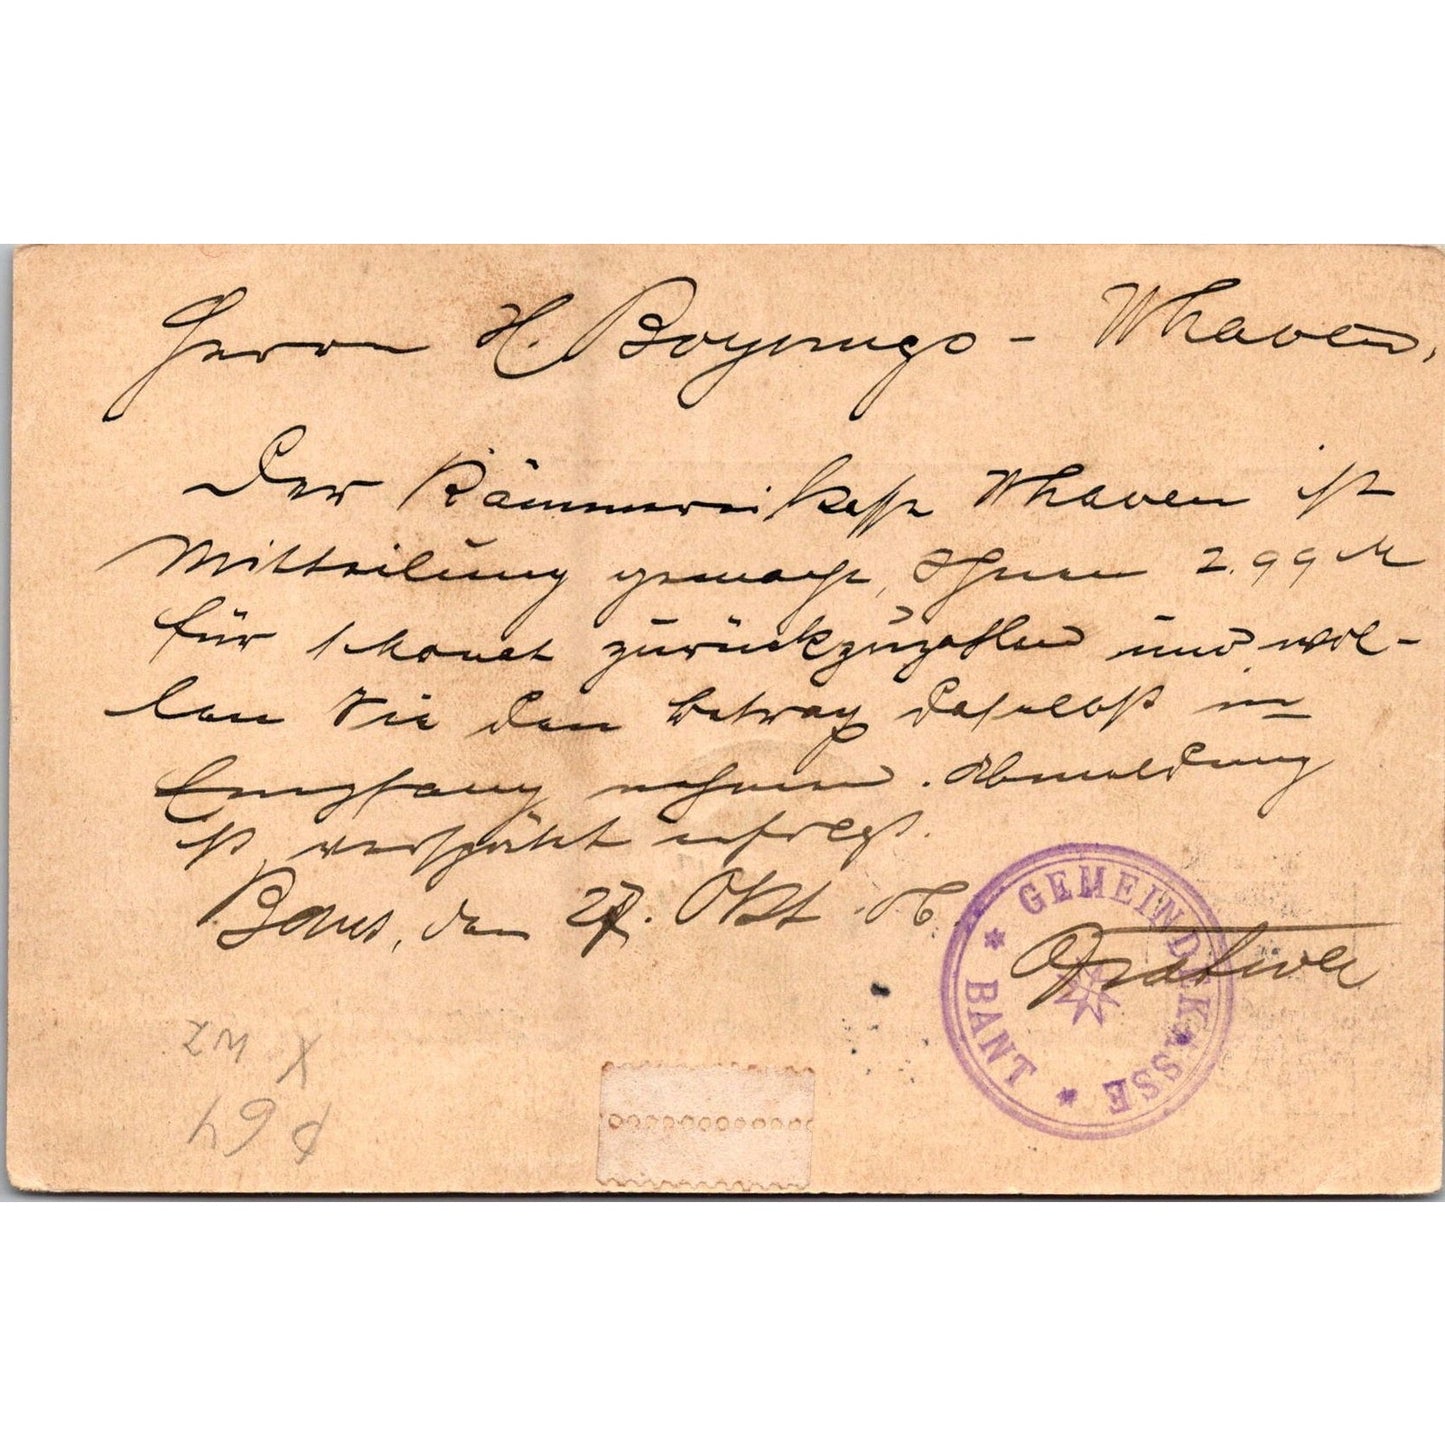 Herrn H. Boyungs - Whaven,
Der Kämmereikasse Whaven ist
Mitteilung gemacht, Ihnen 2.99 M
für 1 Monat zurückzuzahlen und wol-
len Sie den Betrag daselbst in
Empfang nehmen. Abmeldung
ist verspätet erfolgt.
Bant, den 27. Okt. 06
GEMEINDEKASSE
BANT